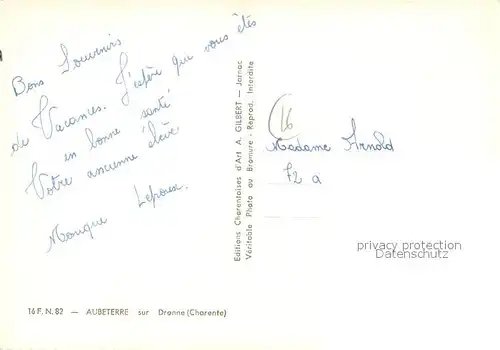 Bons Souvenirs
de Vacances. J'espère que vous êtes
en bonne santé
Votre ancienne élève
Monique
16 F. N. 82 — AUBETERRE sur Dronne (Charente)
Editions Charentaises d'Art A. GILBERT — Jarnac
Véritable Photo au Bromure - Reprod. Interdite
16
Madame Arnold
72 a
privacy protection
Datenschutz